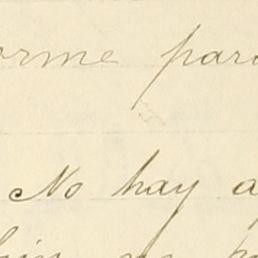 orme para
No hay a